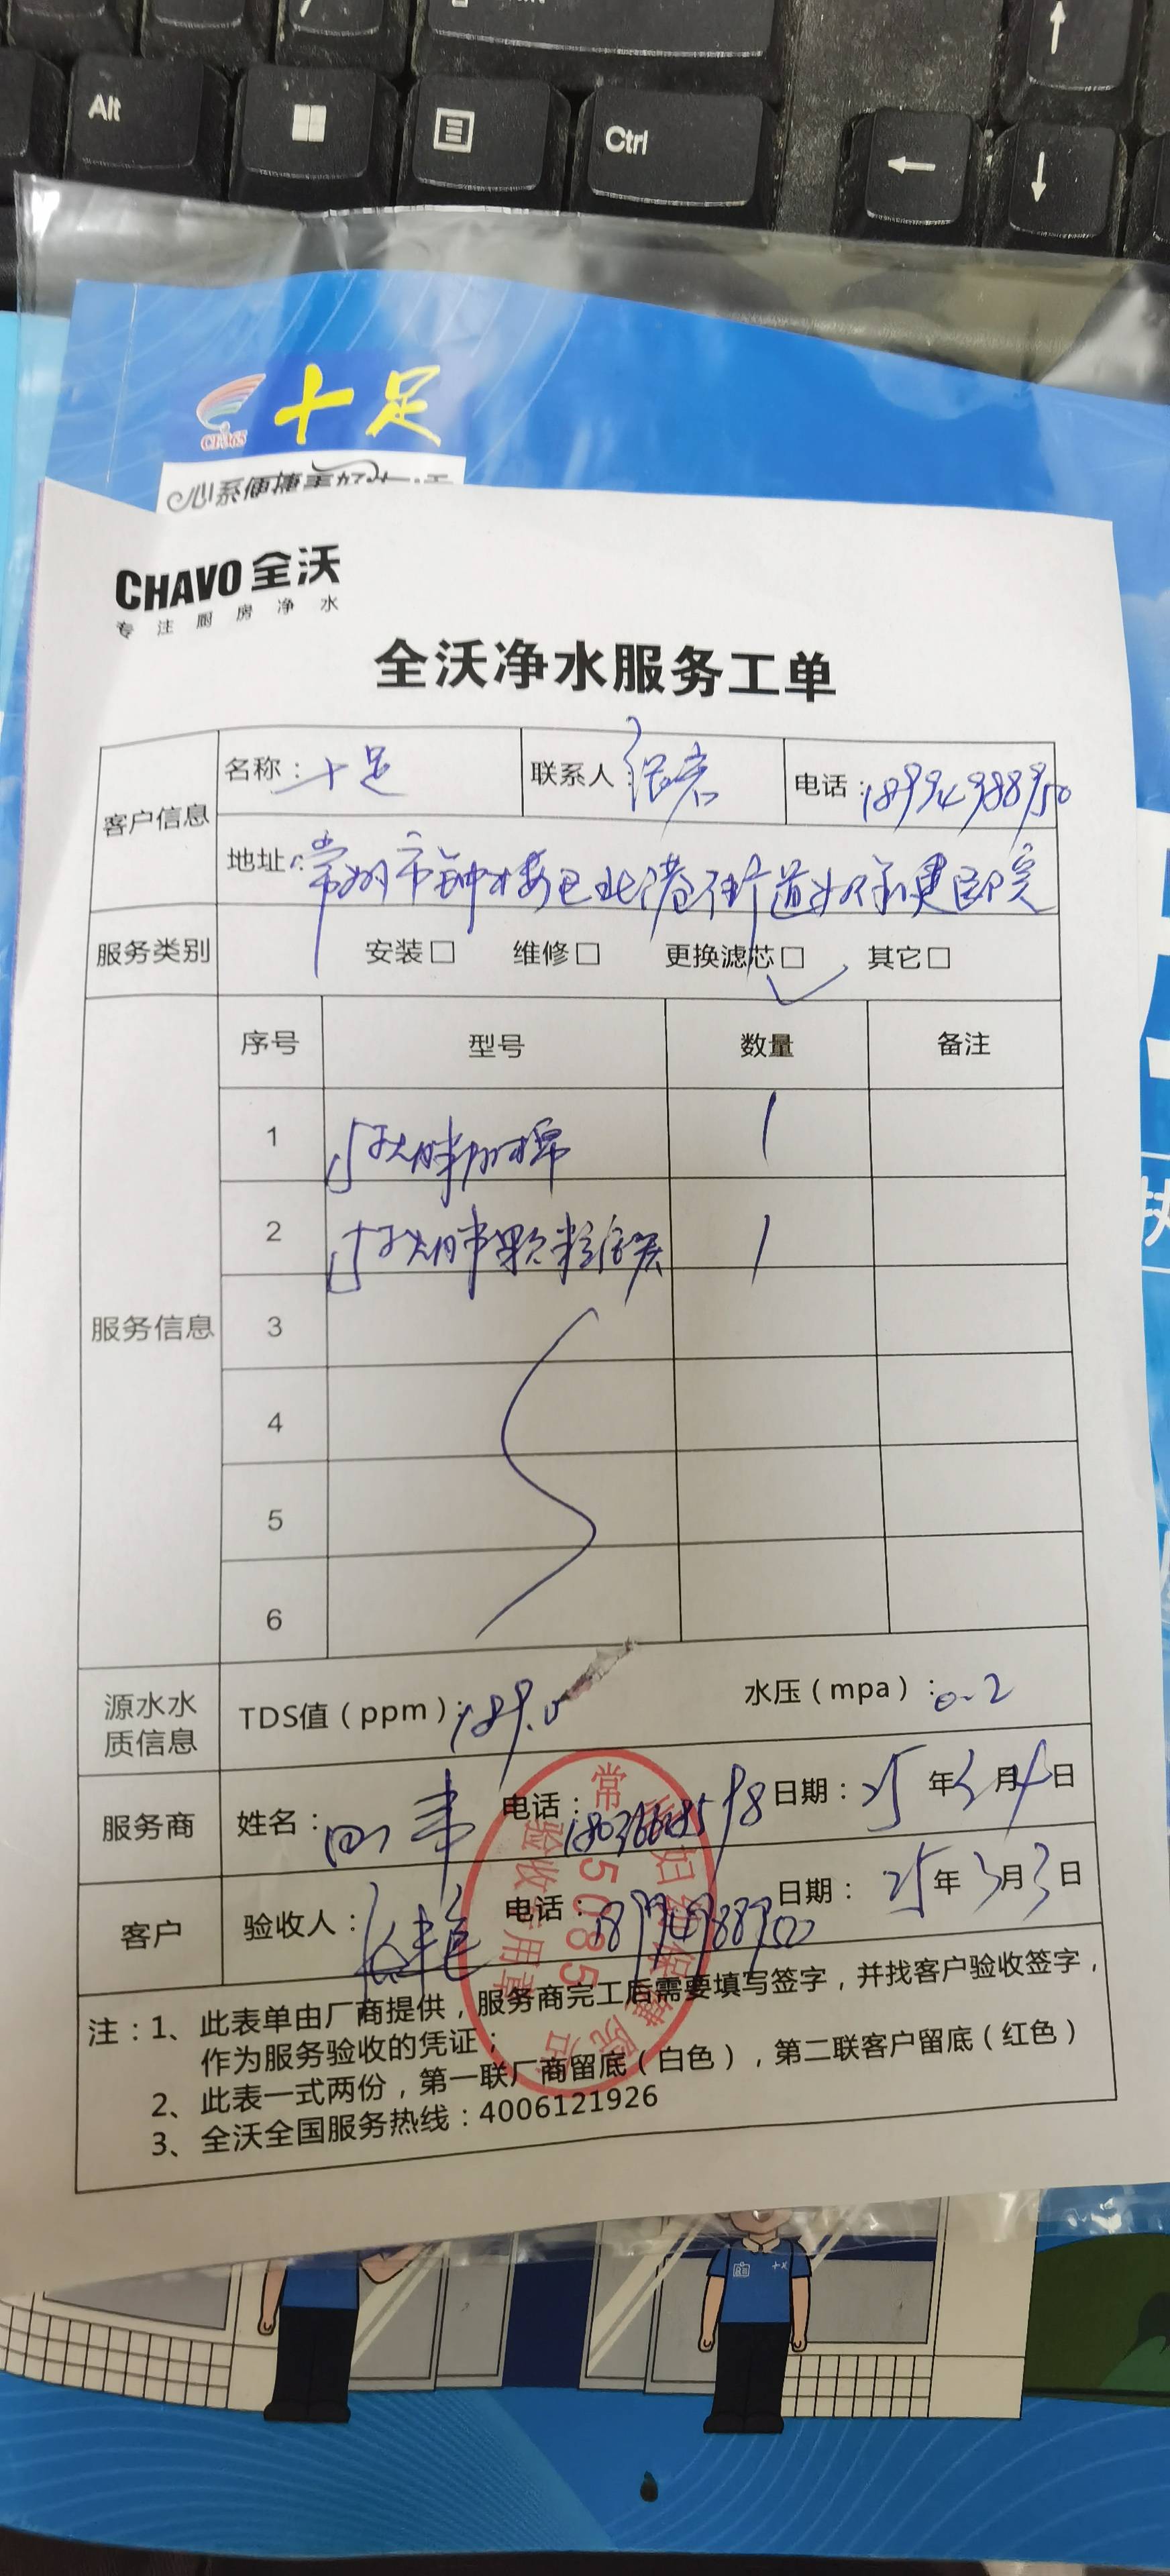 Alt
Ctrl
十足
CF365
心系便捷美好
CHAVO 全沃
专注厨房净水
全沃净水服务工单
客户信息
名称：十足
联系人
电话：18994988950
地址：常州市钟楼区北港街道妇保健医院
服务类别
安装□ 维修□ 更换滤芯□ 其它□
服务信息
序号 型号 数量 备注
1 1
2 1
3
4
5
6
源水水质信息
TDS值（ppm）：189.0
水压（mpa）：0.2
服务商
姓名：
电话：
日期：25年3月4日
客户
验收人：
电话：
日期：25年3月3日
常 妇 保健院店
50855
验收专用章
注：1、此表单由厂商提供，服务商完工后需要填写签字，并找客户验收签字，
作为服务验收的凭证；
2、此表一式两份，第一联厂商留底（白色），第二联客户留底（红色）
3、全沃全国服务热线：4006121926